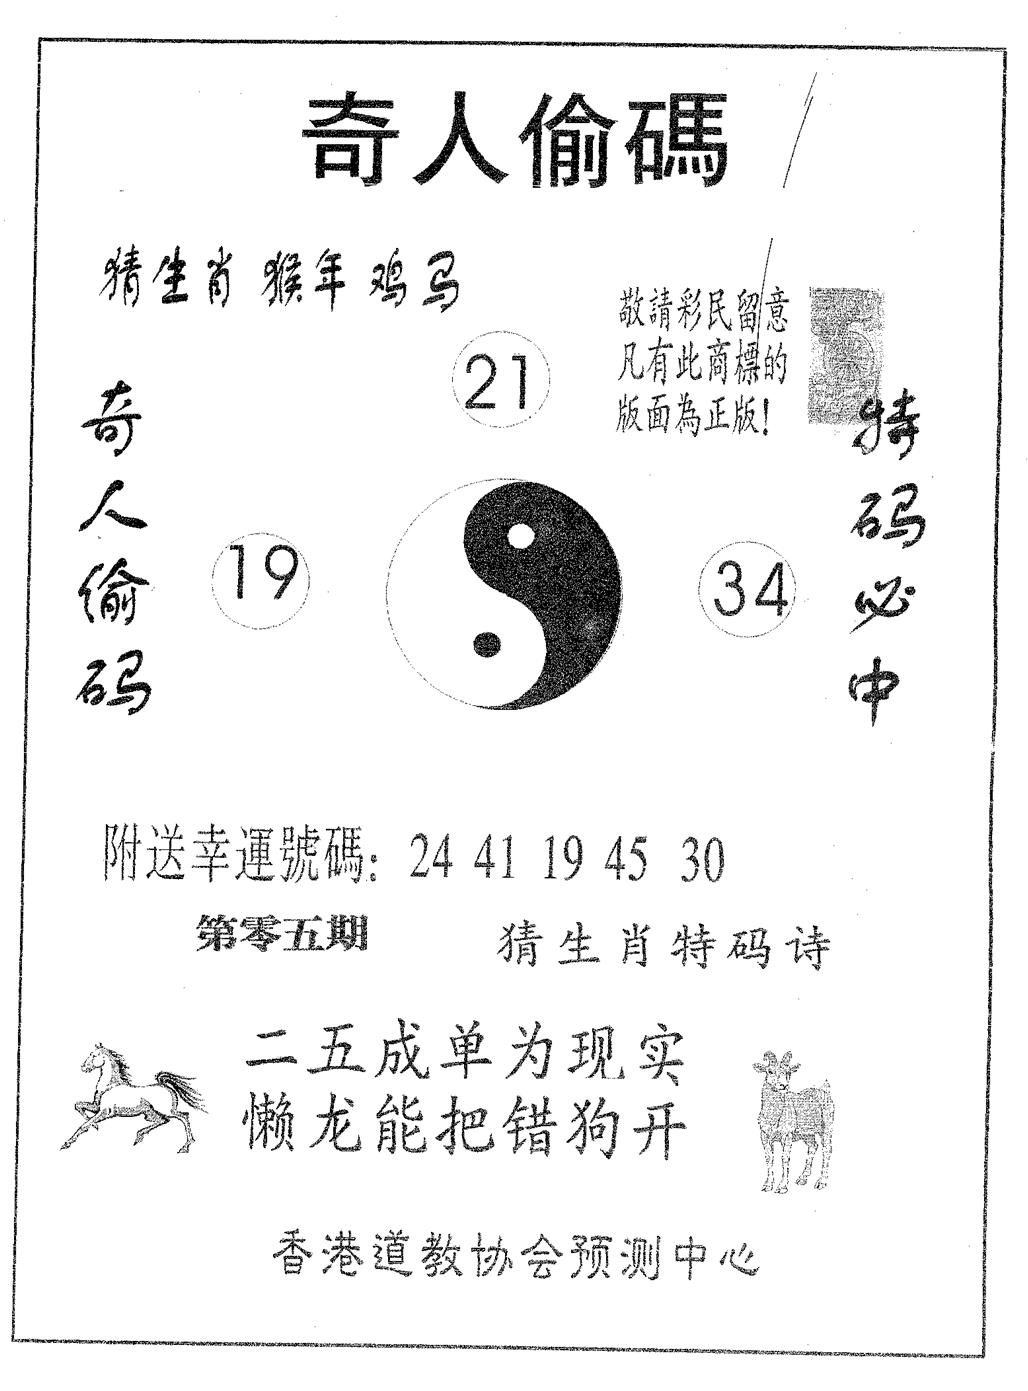 奇人偷碼
猜生肖 猴年 鸡马
敬請彩民留意
凡有此商標的
版面為正版!
21
奇人偷码
19
34
特码必中
附送幸運號碼: 24 41 19 45 30
第零五期
猜生肖特码诗
二五成单为现实
懒龙能把错狗开
香港道教协会预测中心